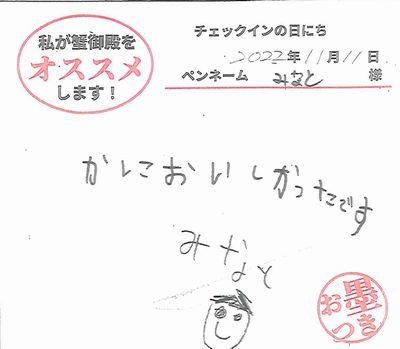 私が蟹御殿を
オススメ
します!
チェックインの日にち
2022年11月11日
ペンネーム みなと 様
かにおいしかったです
みなと
お墨つき